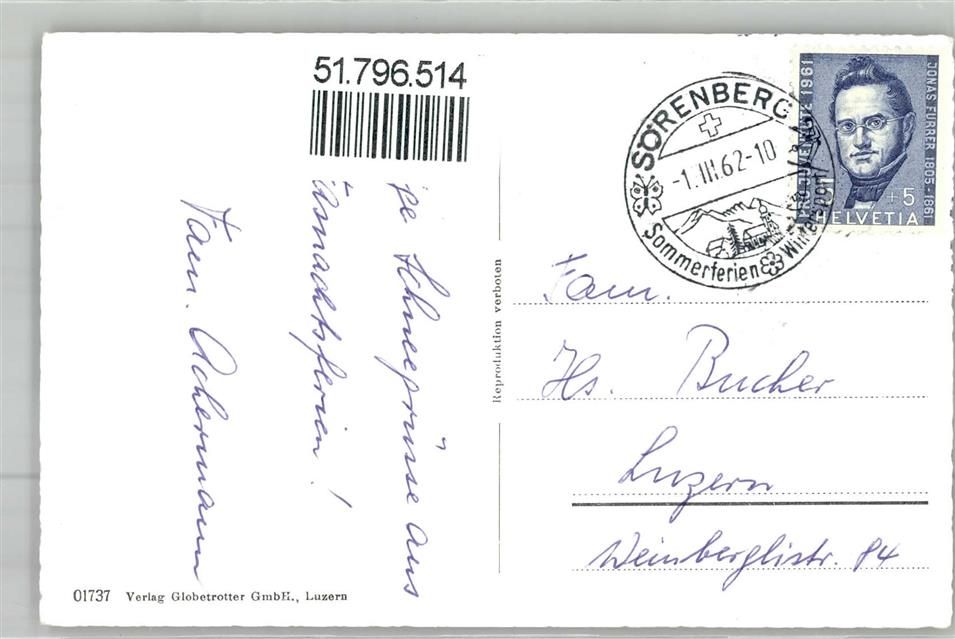 51.796.514
ge Schneegrüsse aus
Fasnachtsferien!
Fam. Achermann
Reproduktion verboten
SÖRENBERG
-1.III.62-10
Sommerferien
Wintersport
PRO JUVENTUTE 1961
JONAS FURRER 1805-1861
5+5
HELVETIA
Fam.
Hs. Bucher
Luzern
Weinberglistr. 84
01737 Verlag Globetrotter GmbH., Luzern